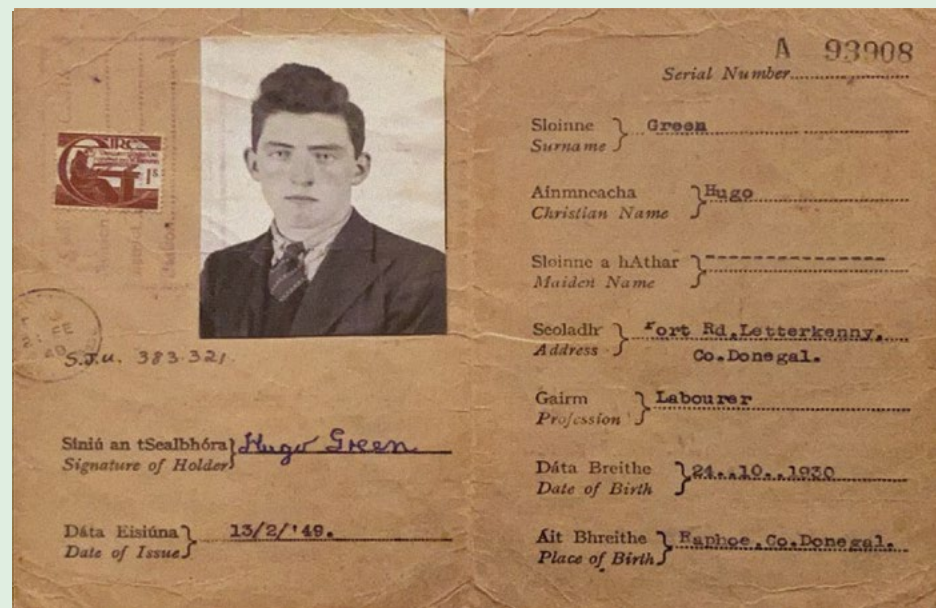 1s
S.J.U. 383.321.
Síniú an tSealbhóra
Signature of Holder
Hugo Green
Dáta Eisiúna
Date of Issue
13/2/'49.
A 93908
Serial Number
Sloinne
Surname
Green
Ainmneacha
Christian Name
Hugo
Sloinne a hAthar
Maiden Name
Seoladh
Address
Port Rd,Letterkenny,
Co.Donegal.
Gairm
Profession
Labourer
Dáta Breithe
Date of Birth
24..10..1930
Áit Bhreithe
Place of Birth
Raphoe,Co.Donegal.